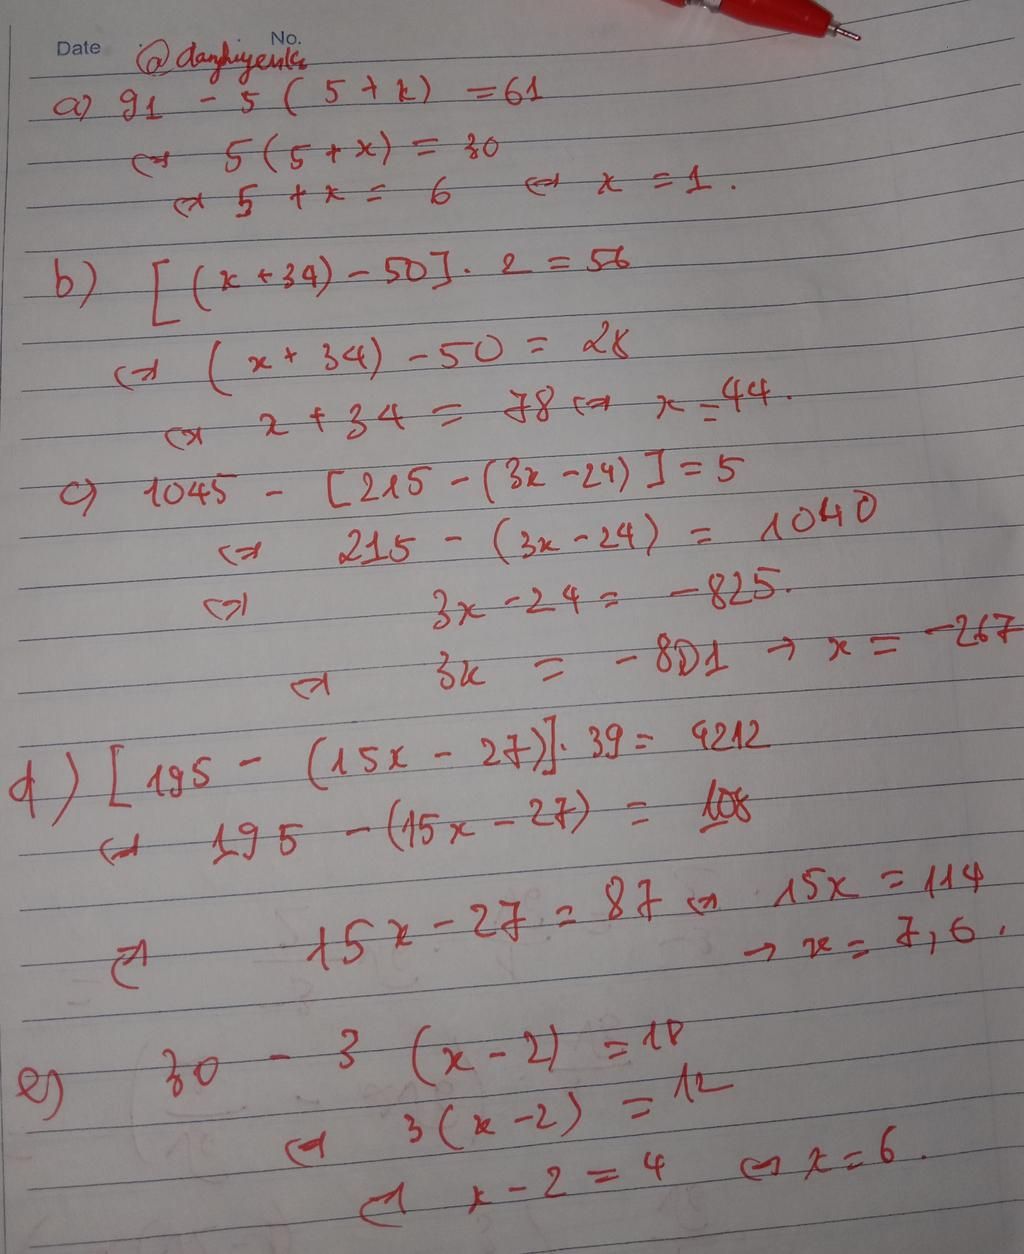 Date No.
@danhuyenka
a) 91 - 5 ( 5 + x ) = 61
⇔ 5 ( 5 + x ) = 30
⇔ 5 + x = 6 ⇔ x = 1 .
b) [ ( x + 34 ) - 50 ] . 2 = 56
⇔ ( x + 34 ) - 50 = 28
⇔ x + 34 = 78 ⇔ x = 44 .
c) 1045 - [ 215 - ( 3x - 24 ) ] = 5
⇔ 215 - ( 3x - 24 ) = 1040
⇔ 3x - 24 = - 825 .
⇔ 3x = - 801 → x = - 267
d) [ 195 - ( 15x - 27 ) ] . 39 = 4212
⇔ 195 - ( 15x - 27 ) = 108
⇔ 15x - 27 = 87 ⇔ 15x = 114
→ x = 7,6 .
e) 30 - 3 ( x - 2 ) = 18
⇔ 3 ( x - 2 ) = 12
⇔ x - 2 = 4 ⇔ x = 6 .